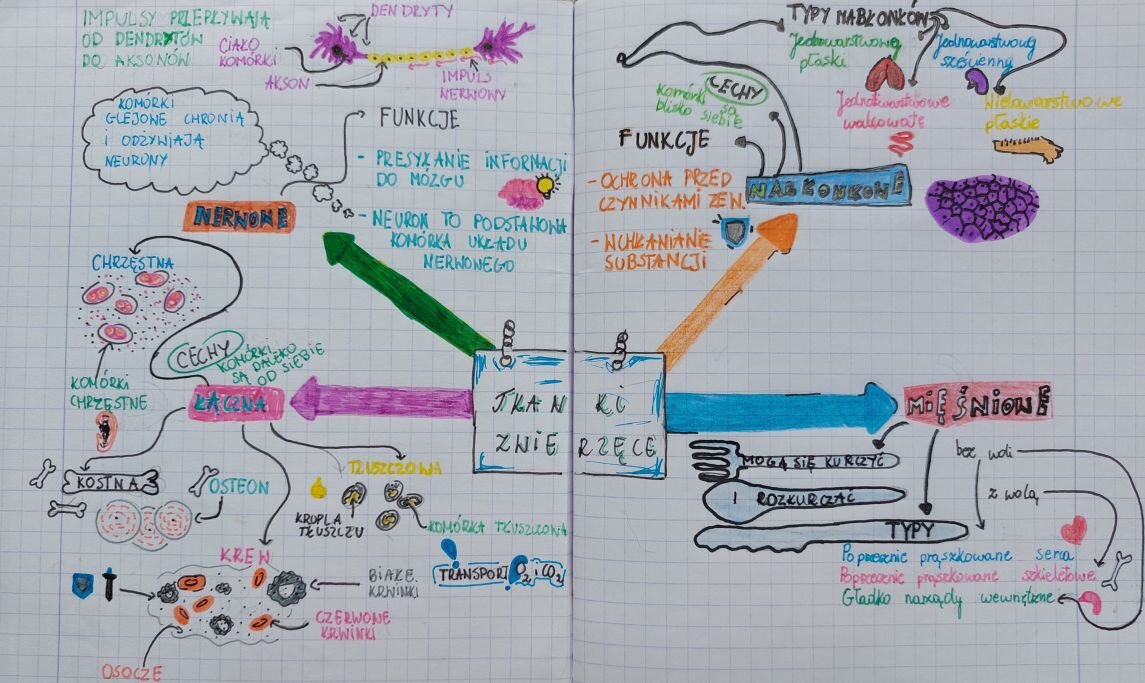 IMPULSY PRZEPŁYWAJĄ
OD DENDRYTÓW
DO AKSONÓW
DENDRYTY
CIAŁO
KOMÓRKI
AKSON
IMPULS
NERWOWY
KOMÓRKI
GLEJOWE CHRONIĄ
I ODŻYWIAJĄ
NEURONY
FUNKCJE
- PRESYŁANIE INFORMACJI
DO MÓZGU
- NEURON TO PODSTAWOWA
KOMÓRKA UKŁADU
NERWONEGO
NERWOWE
CHRZĘSTNA
CECHY
KOMÓRKI
SĄ DALEKO
OD SIEBIE
KOMÓRKI
CHRZĘSTNE
ŁĄCZNA
KOSTNA
OSTEON
TŁUSZCZOWA
KROPLA
TŁUSZCZU
KOMÓRKA TŁUSZCZOWA
KREW
TRANSPORT O2 i CO2
BIAŁE
KRWINKI
CZERWONE
KRWINKI
OSOCZE
TKANKI
ZWIERZĘCE
TYPY NABŁONKÓW
Jednowarstwowy
płaski
Jednowarstwowy
sześcienny
Jednowarstwowe
walcowate
Wielowarstwowe
płaskie
CECHY
Komórki są
blisko siebie
FUNKCJE
- OCHRONA PRZED
CZYNNIKAMI ZEW.
- WCHŁANIANIE
SUBSTANCJI
NABŁONKOWE
MIĘŚNIOWE
MOGĄ SIĘ KURCZYĆ
I ROZKURCZAĆ
TYPY
bez woli
z wolą
Poprzecznie prążkowane serca
Poprzecznie prążkowane szkieletowe
Gładko narządy wewnętrzne